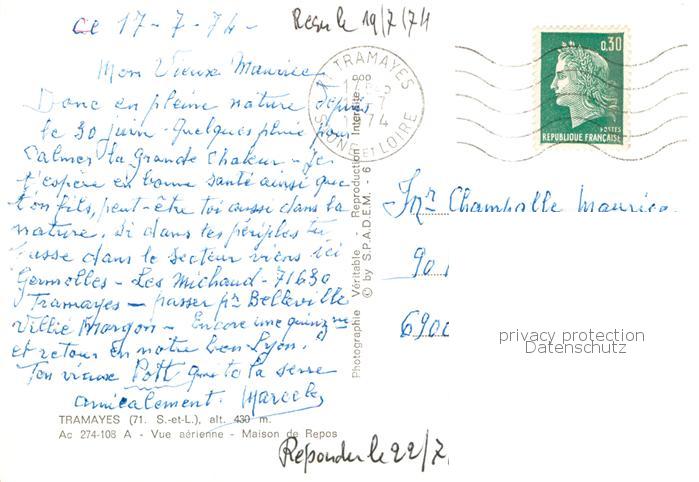 ce 17-7-74-
Reçu le 19/7/74
Mon Vieux Maurice
Donc en pleine nature depuis
le 30 juin - Quelques pluie pour
Calmer la Grande Chaleur - Je
t'espère en bonne santé ainsi que
ton fils, peut-être toi aussi dans la
nature. Si dans tes périples tu
passe dans le Secteur viens ici
Germolles - Les Michaud - 71630
Tramayes - passer pr Belleville
Villié Morgon - Encore une quinzne
et retour en notre bon Lyon.
Ton vieux Pott qui te la serre
amicalement. Marcel
TRAMAYES (71. S.-et-L.), alt. 430 m.
Ac 274-108 A - Vue aérienne - Maison de Repos
Répondu le 22/7
Photographie Véritable - Reproduction Interdite
© by S.P.A.D.E.M. - 6
TRAMAYES
1974
SAONE ET LOIRE
0,30
POSTES
REPUBLIQUE FRANÇAISE
Mr Chamballe Maurice
90
6900
privacy protection
Datenschutz